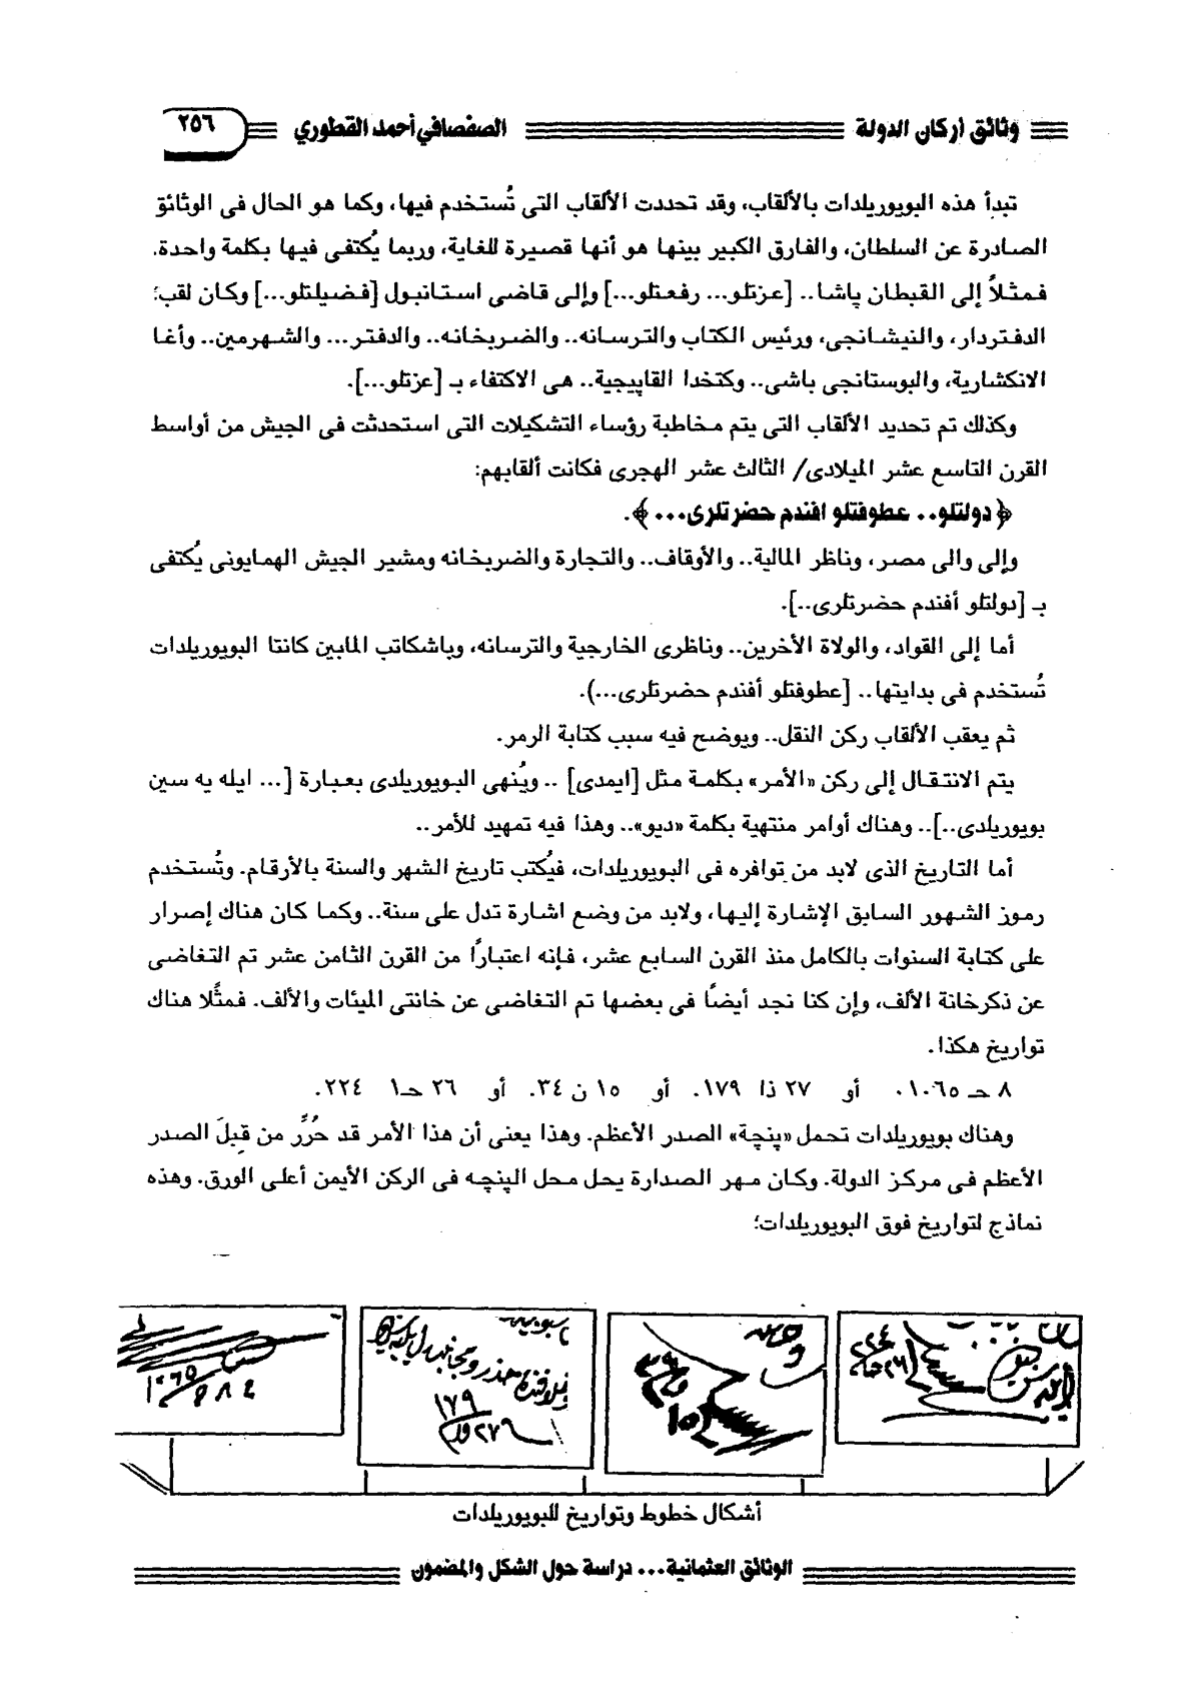 وثائق أركان الدولة الصفصافي أحمد القطوري ٢٥٦
تبدأ هذه البويوريلدات بالألقاب، وقد تحددت الألقاب التى تُستخدم فيها، وكما هو الحال فى الوثائق
الصادرة عن السلطان، والفارق الكبير بينها هو أنها قصيرة للغاية، وربما يُكتفى فيها بكلمة واحدة.
فمثلاً إلى القبطان پاشا.. [عزتلو... رفعتلو...] وإلى قاضى استانبول [فضيلتلو...] وكان لقب؛
الدفتردار، والنيشانجى، ورئيس الكتاب والترسانه.. والضربخانه.. والدفتر... والشهرمين.. وأغا
الانكشارية، والبوستانجى باشى.. وكتخدا القاپيجية.. هى الاكتفاء بـ [عزتلو...].
وكذلك تم تحديد الألقاب التى يتم مخاطبة رؤساء التشكيلات التى استحدثت فى الجيش من أواسط
القرن التاسع عشر الميلادى/ الثالث عشر الهجرى فكانت ألقابهم:
﴿دولتلو.. عطوفتلو افندم حضرتلرى...﴾.
وإلى والى مصر، وناظر المالية.. والأوقاف.. والتجارة والضربخانه ومشير الجيش الهمايونى يُكتفى
بـ [دولتلو أفندم حضرتلرى..].
أما إلى القواد، والولاة الأخرين.. وناظرى الخارجية والترسانه، وباشكاتب المابين كانتا البويوريلدات
تُستخدم فى بدايتها.. [عطوفتلو أفندم حضرتلرى...).
ثم يعقب الألقاب ركن النقل.. ويوضح فيه سبب كتابة الرمر.
يتم الانتقال إلى ركن «الأمر» بكلمة مثل [ايمدى] .. ويُنهى البويوريلدى بعبارة [... ايله يه سين
بويوريلدى..].. وهناك أوامر منتهية بكلمة «ديو».. وهذا فيه تمهيد للأمر..
أما التاريخ الذى لابد من توافره فى البويوريلدات، فيُكتب تاريخ الشهر والسنة بالأرقام. وتُستخدم
رموز الشهور السابق الإشارة إليها، ولابد من وضع اشارة تدل على سنة.. وكما كان هناك إصرار
على كتابة السنوات بالكامل منذ القرن السابع عشر، فإنه اعتبارًا من القرن الثامن عشر تم التغاضى
عن ذكرخانة الألف، وإن كنا نجد أيضًا فى بعضها تم التغاضى عن خانتى الميئات والألف. فمثًلا هناك
تواريخ هكذا.
٨ حـ ١٠٦٥. أو ٢٧ ذا ١٧٩. أو ١٥ ن ٣٤. أو ٢٦ حـ١ ٢٢٤.
وهناك بويوريلدات تحمل «پنچة» الصدر الأعظم. وهذا يعنى أن هذا الأمر قد حُرِّر من قِبلَ الصدر
الأعظم فى مركز الدولة. وكان مهر الصدارة يحل محل الپنچه فى الركن الأيمن أعلى الورق. وهذه
نماذج لتواريخ فوق البويوريلدات؛
أشكال خطوط وتواريخ للبويوريلدات
الوثائق العثمانية... دراسة حول الشكل والمضمون